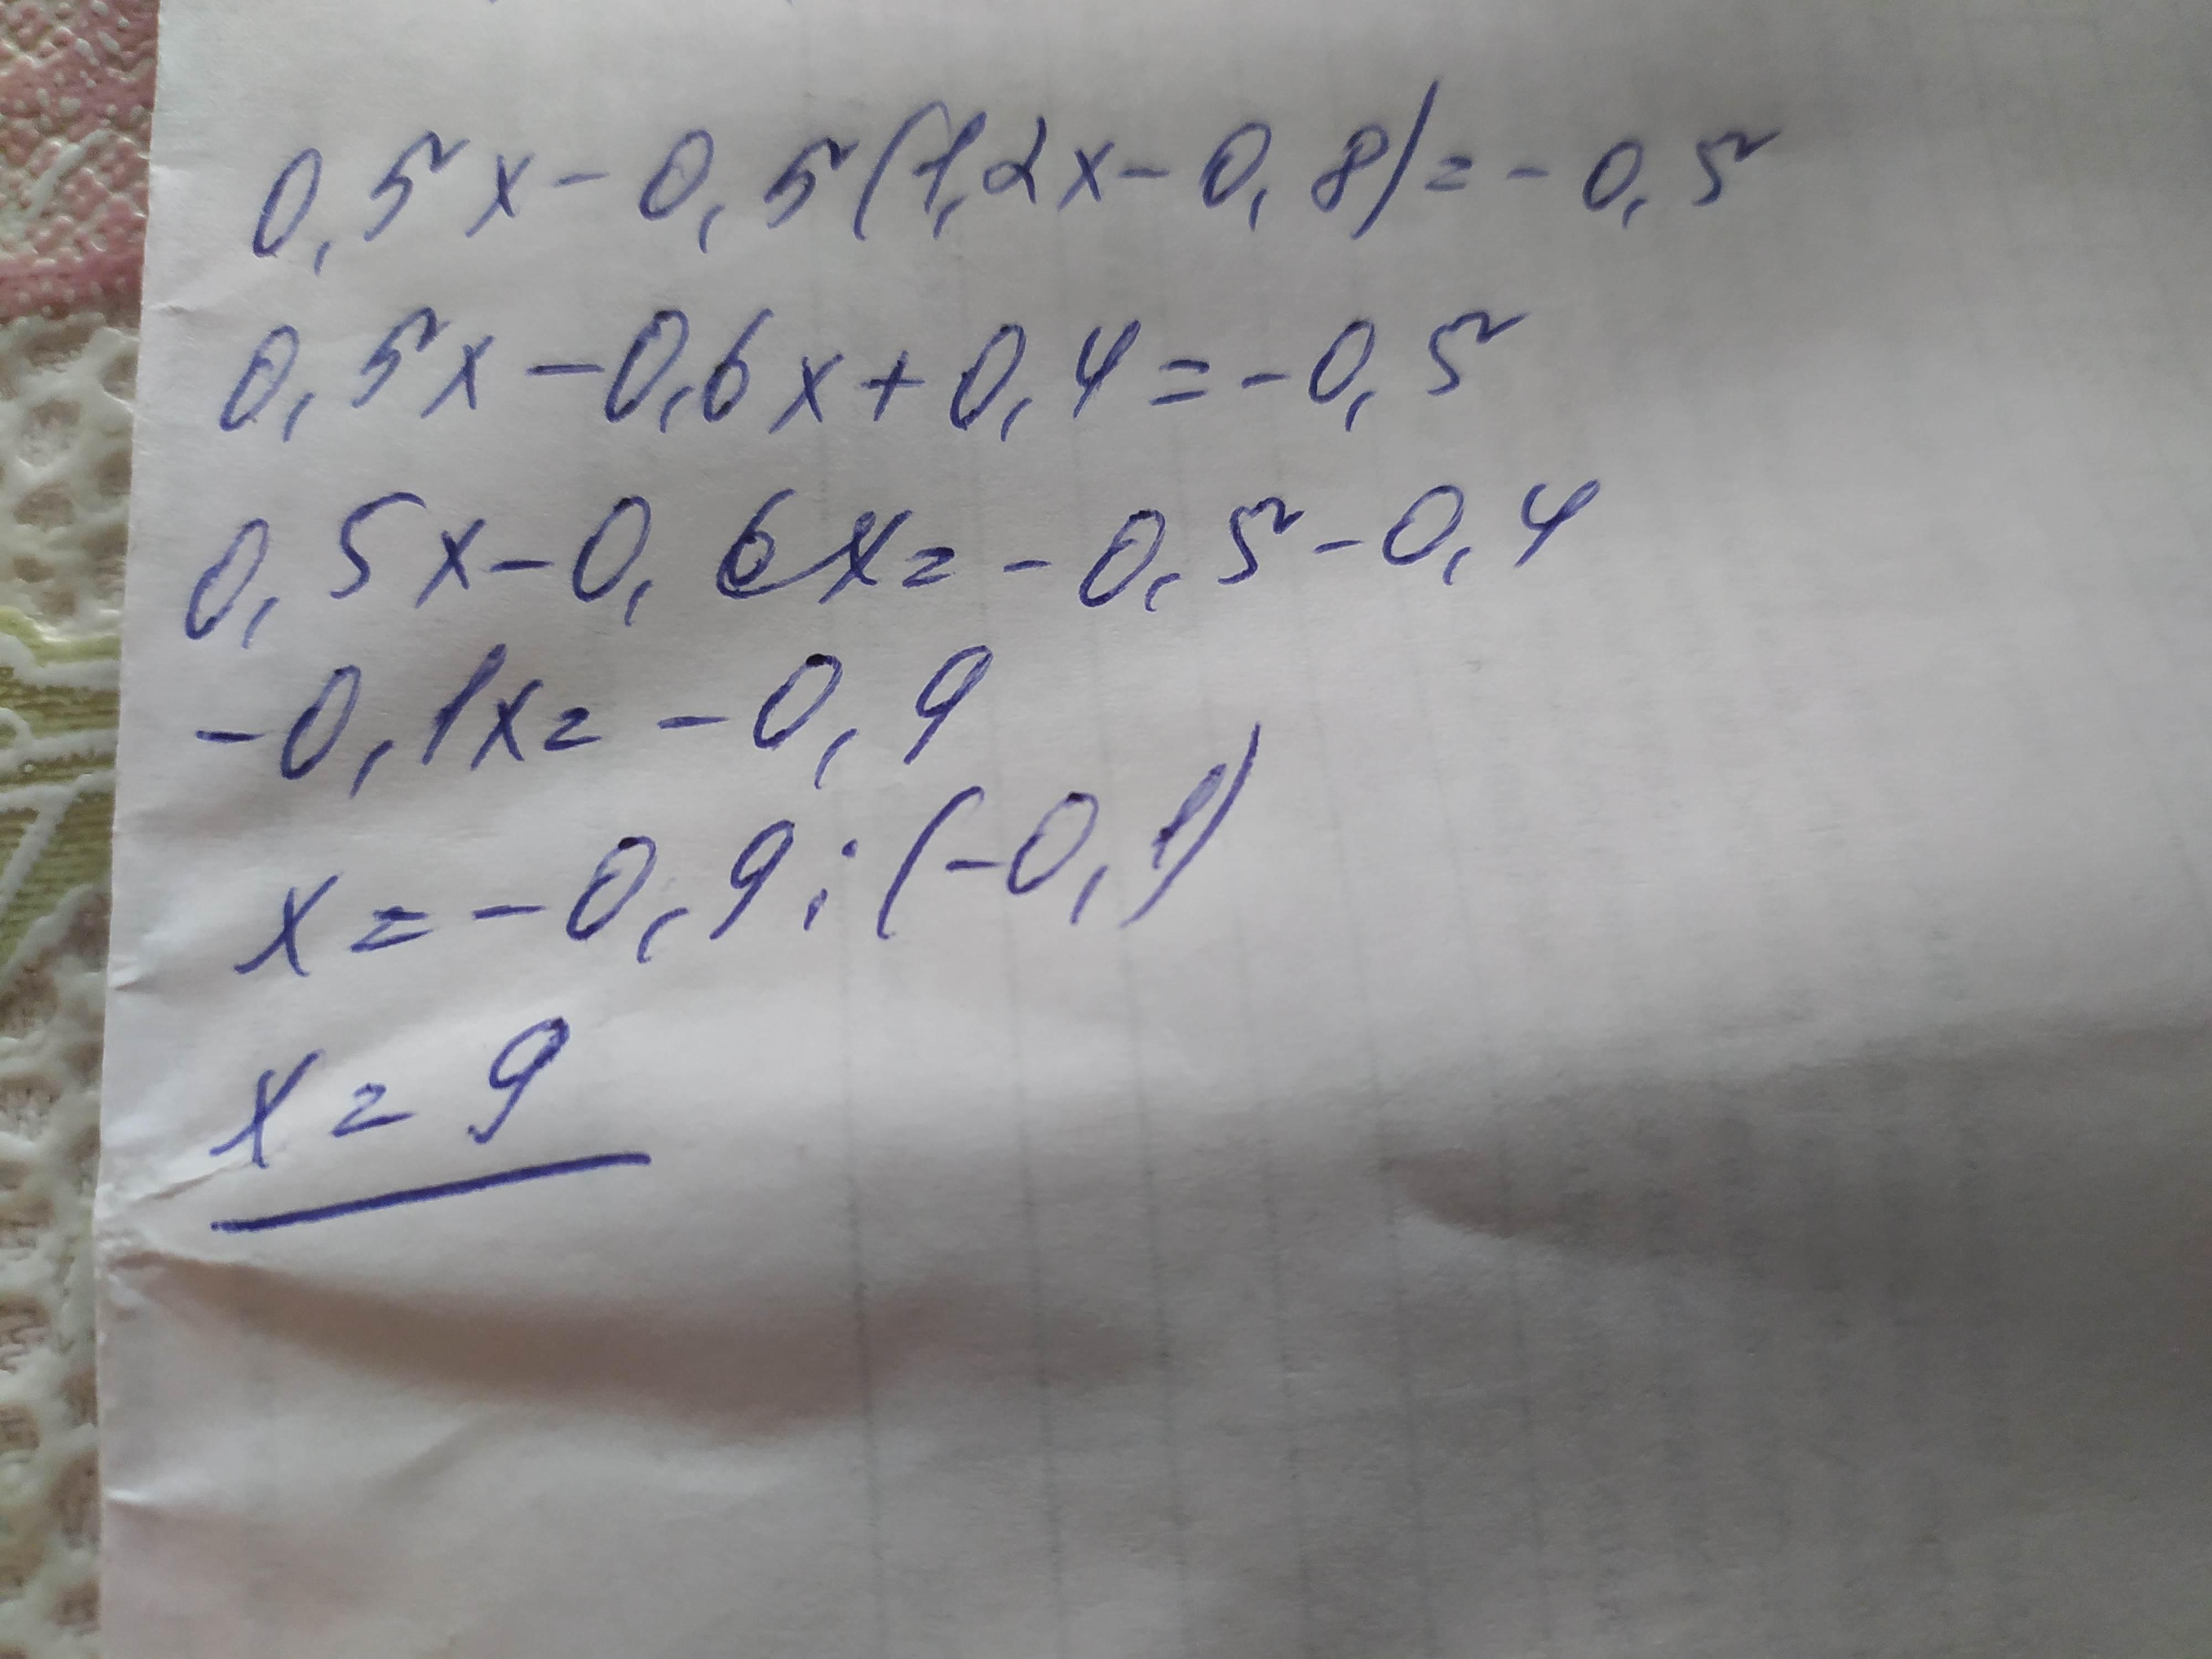 0,5x-0,5(1,2x-0,8)=-0,5
0,5x-0,6x+0,4=-0,5
0,5x-0,6x=-0,5-0,4
-0,1x=-0,9
x=-0,9:(-0,1)
x=9